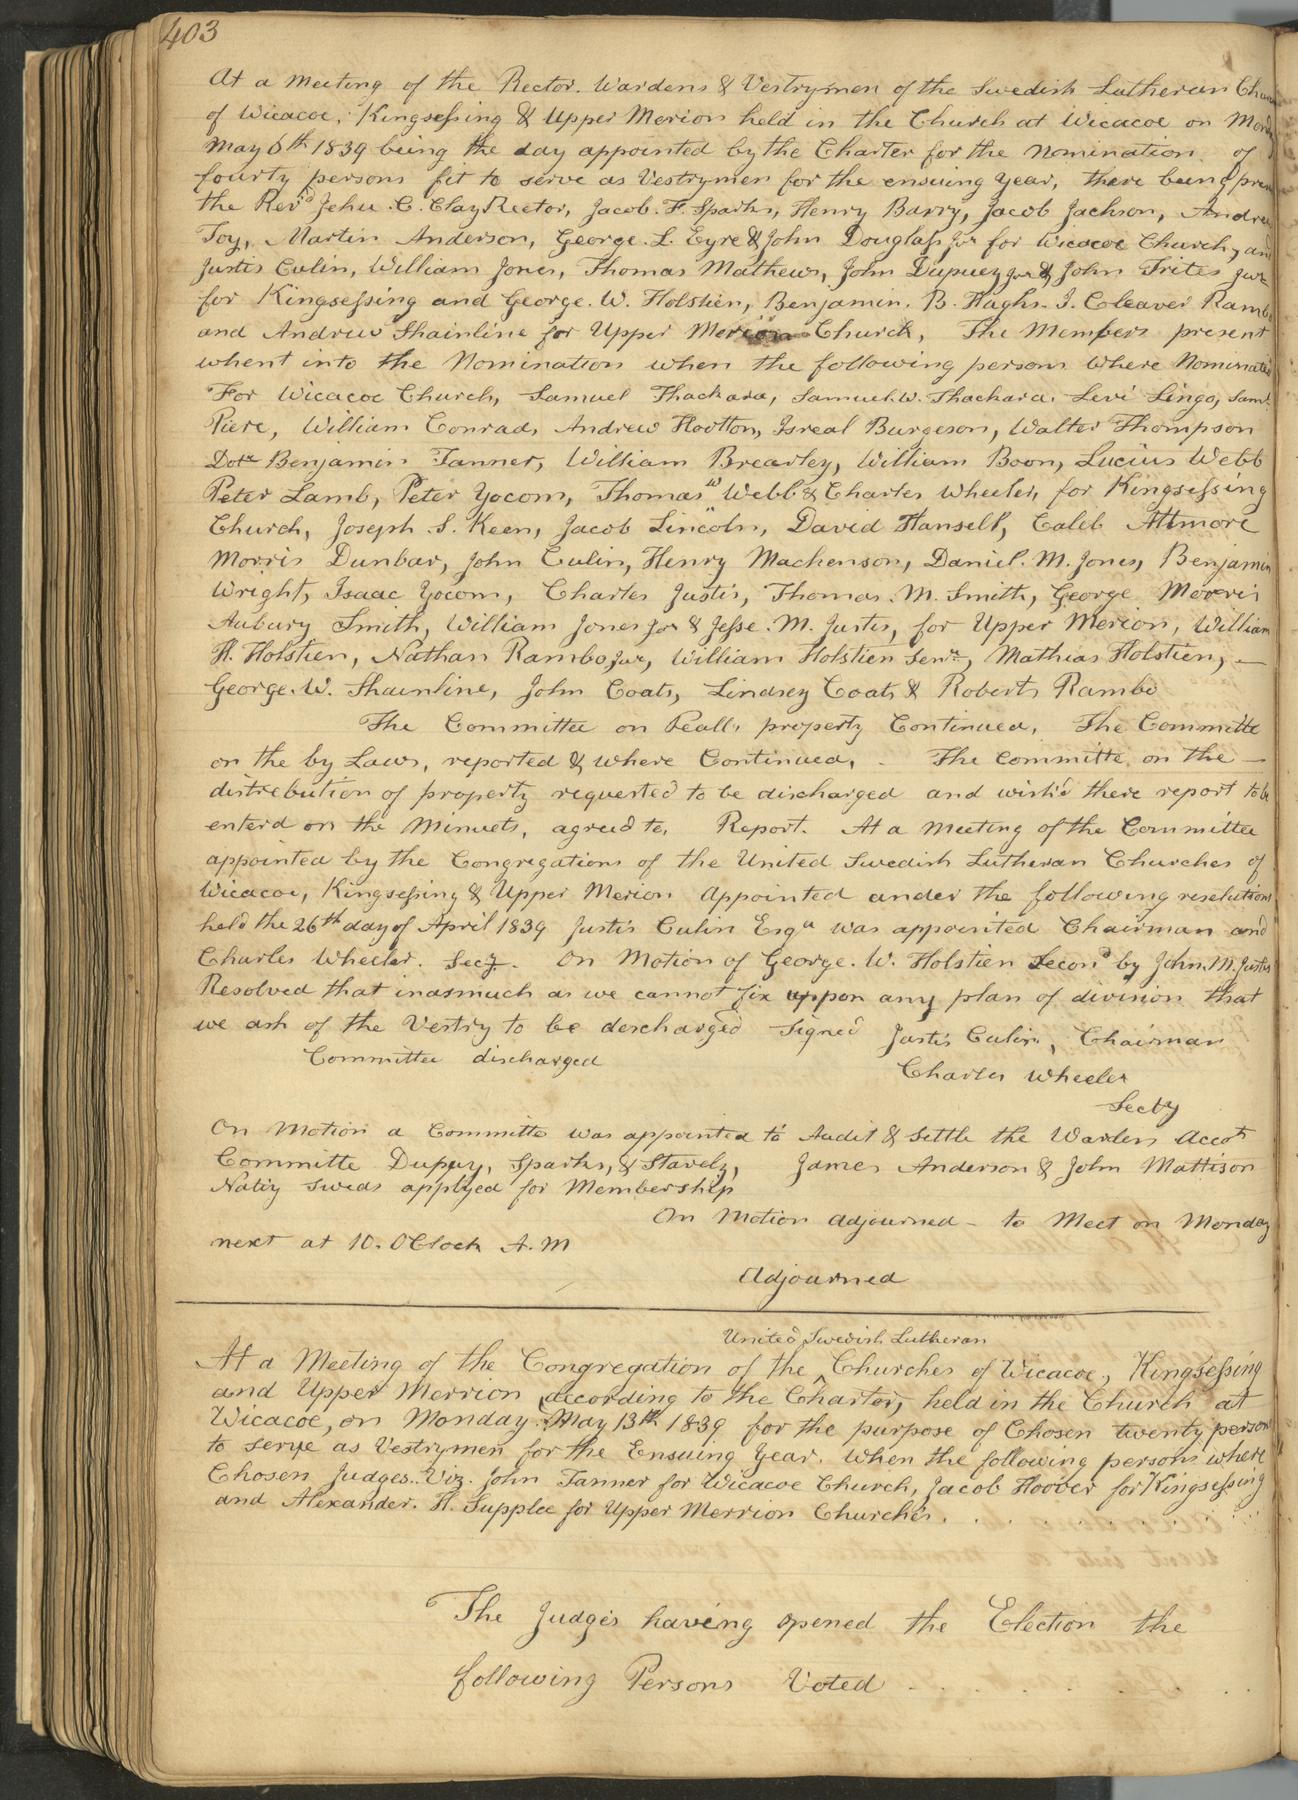 403
At a Meeting of the Rector. Wardens & Vestrymen of the Swedish Lutheran
of Wicacoe, Kingsessing & Upper Merion held in the Church at Wicacoe on
May 6th 1839 being the day appointed by the Charter for the Nomination of
fourty persons fit to serve as Vestrymen for the ensuing Year, there being
the Revd Jehu. C. Clay Rector, Jacob. F. Sparks, Henry Barry, Jacob Jackson, Andrew
Toy, Martin Anderson, George. L. Eyre & John Douglass Jur for Wicacoe Church, and
Justis Culin, William Jones, Thomas Mathews, John Dupuey Jur & John Frites Jur
for Kingsessing and George. W. Holstien, Benjamin. B. Hughs. I. Coleaver Rambo
and Andrew Shainline for Upper Merion Church, The Members present
whent into the Nomination when the following persons where Nominated
For Wicacoe Church, Samuel Thackara, Samuel. W. Thackara. Levi Lingo, Saml.
Piere, William Conrad, Andrew Hootton, Isreal Burgeson, Walter Thompson
Dotr Benjamin Tanner, William Brearley, William Boon, Lucius Webb
Peter Lamb, Peter Yocom, Thomas W Webb & Charles Wheeler, for Kingsessing
Church, Joseph S. Keen, Jacob Lincoln, David Hansell, Caleb Attmore
Morris Dunbar, John Culin, Henry Mackenson, Daniel. M. Jones, Benjamin
Wright, Isaac Yocom, Charles Justis, Thomas. M. Smith, George Morris
Aubury Smith, William Jones Jur & Jesse. M. Justis, for Upper Merion, William
H. Holstien, Nathan Rambo Jur, William Holstien Senr, Mathias Holstien, —
George. W. Shainline, John Coats, Lindsey Coats & Roberts Rambo
The Committee on Reall property Continued, The Committe
on the by Laws, reported & where Continued, . The Committe on the —
distrebution of property requested to be discharged and wish'd there report to be
enterd on the Minuets, agreed to, Report. At a Meeting of the Committee
appointed by the Congregations of the United Swedish Lutheran Churches of
Wicacoe, Kingsessing & Upper Merion Appointed under the following resolutions
held the 26th day of April 1839 Justis Culin Esqu was appointed Chairman and
Charles Wheeler. Secy. On Motion of George. W. Holstien Second by John. M. Justis
Resolved that inasmuch as we cannot fix uppon any plan of division that
we ask of the Vestry to be descharged Signed Justis Culin, Chairman
Committee discharged
Charles Wheeler
Secty
On Motion a Committe was appointed to Audit & Settle the Wardens Accots
Committe Dupuy, Sparks, & Stavely, James Anderson & John Mattison
Nativ Sweds applyed for Membership
On Motion adjourned - to Meet on Monday
next at 10. OClock A.M
Adjourned
United Swedish Lutheran
At a Meeting of the Congregation of the ‸ Churches of Wicacoe, Kingsessing
and Upper Merrion according to the Charter, held in the Church at
Wicacoe, on Monday May 13th 1839 for the purpose of Chosen twenty person
to serve as Vestrymen for the Ensuing Year. When the following persons where
Chosen Judges. Viz. John Tanner for Wicacoe Church, Jacob Hoover for Kingsessing
and Alexander. H. Supplee for Upper Merrion Churches. . . . . . .
The Judges having opened the Election the
following Persons Voted . . . . . . .